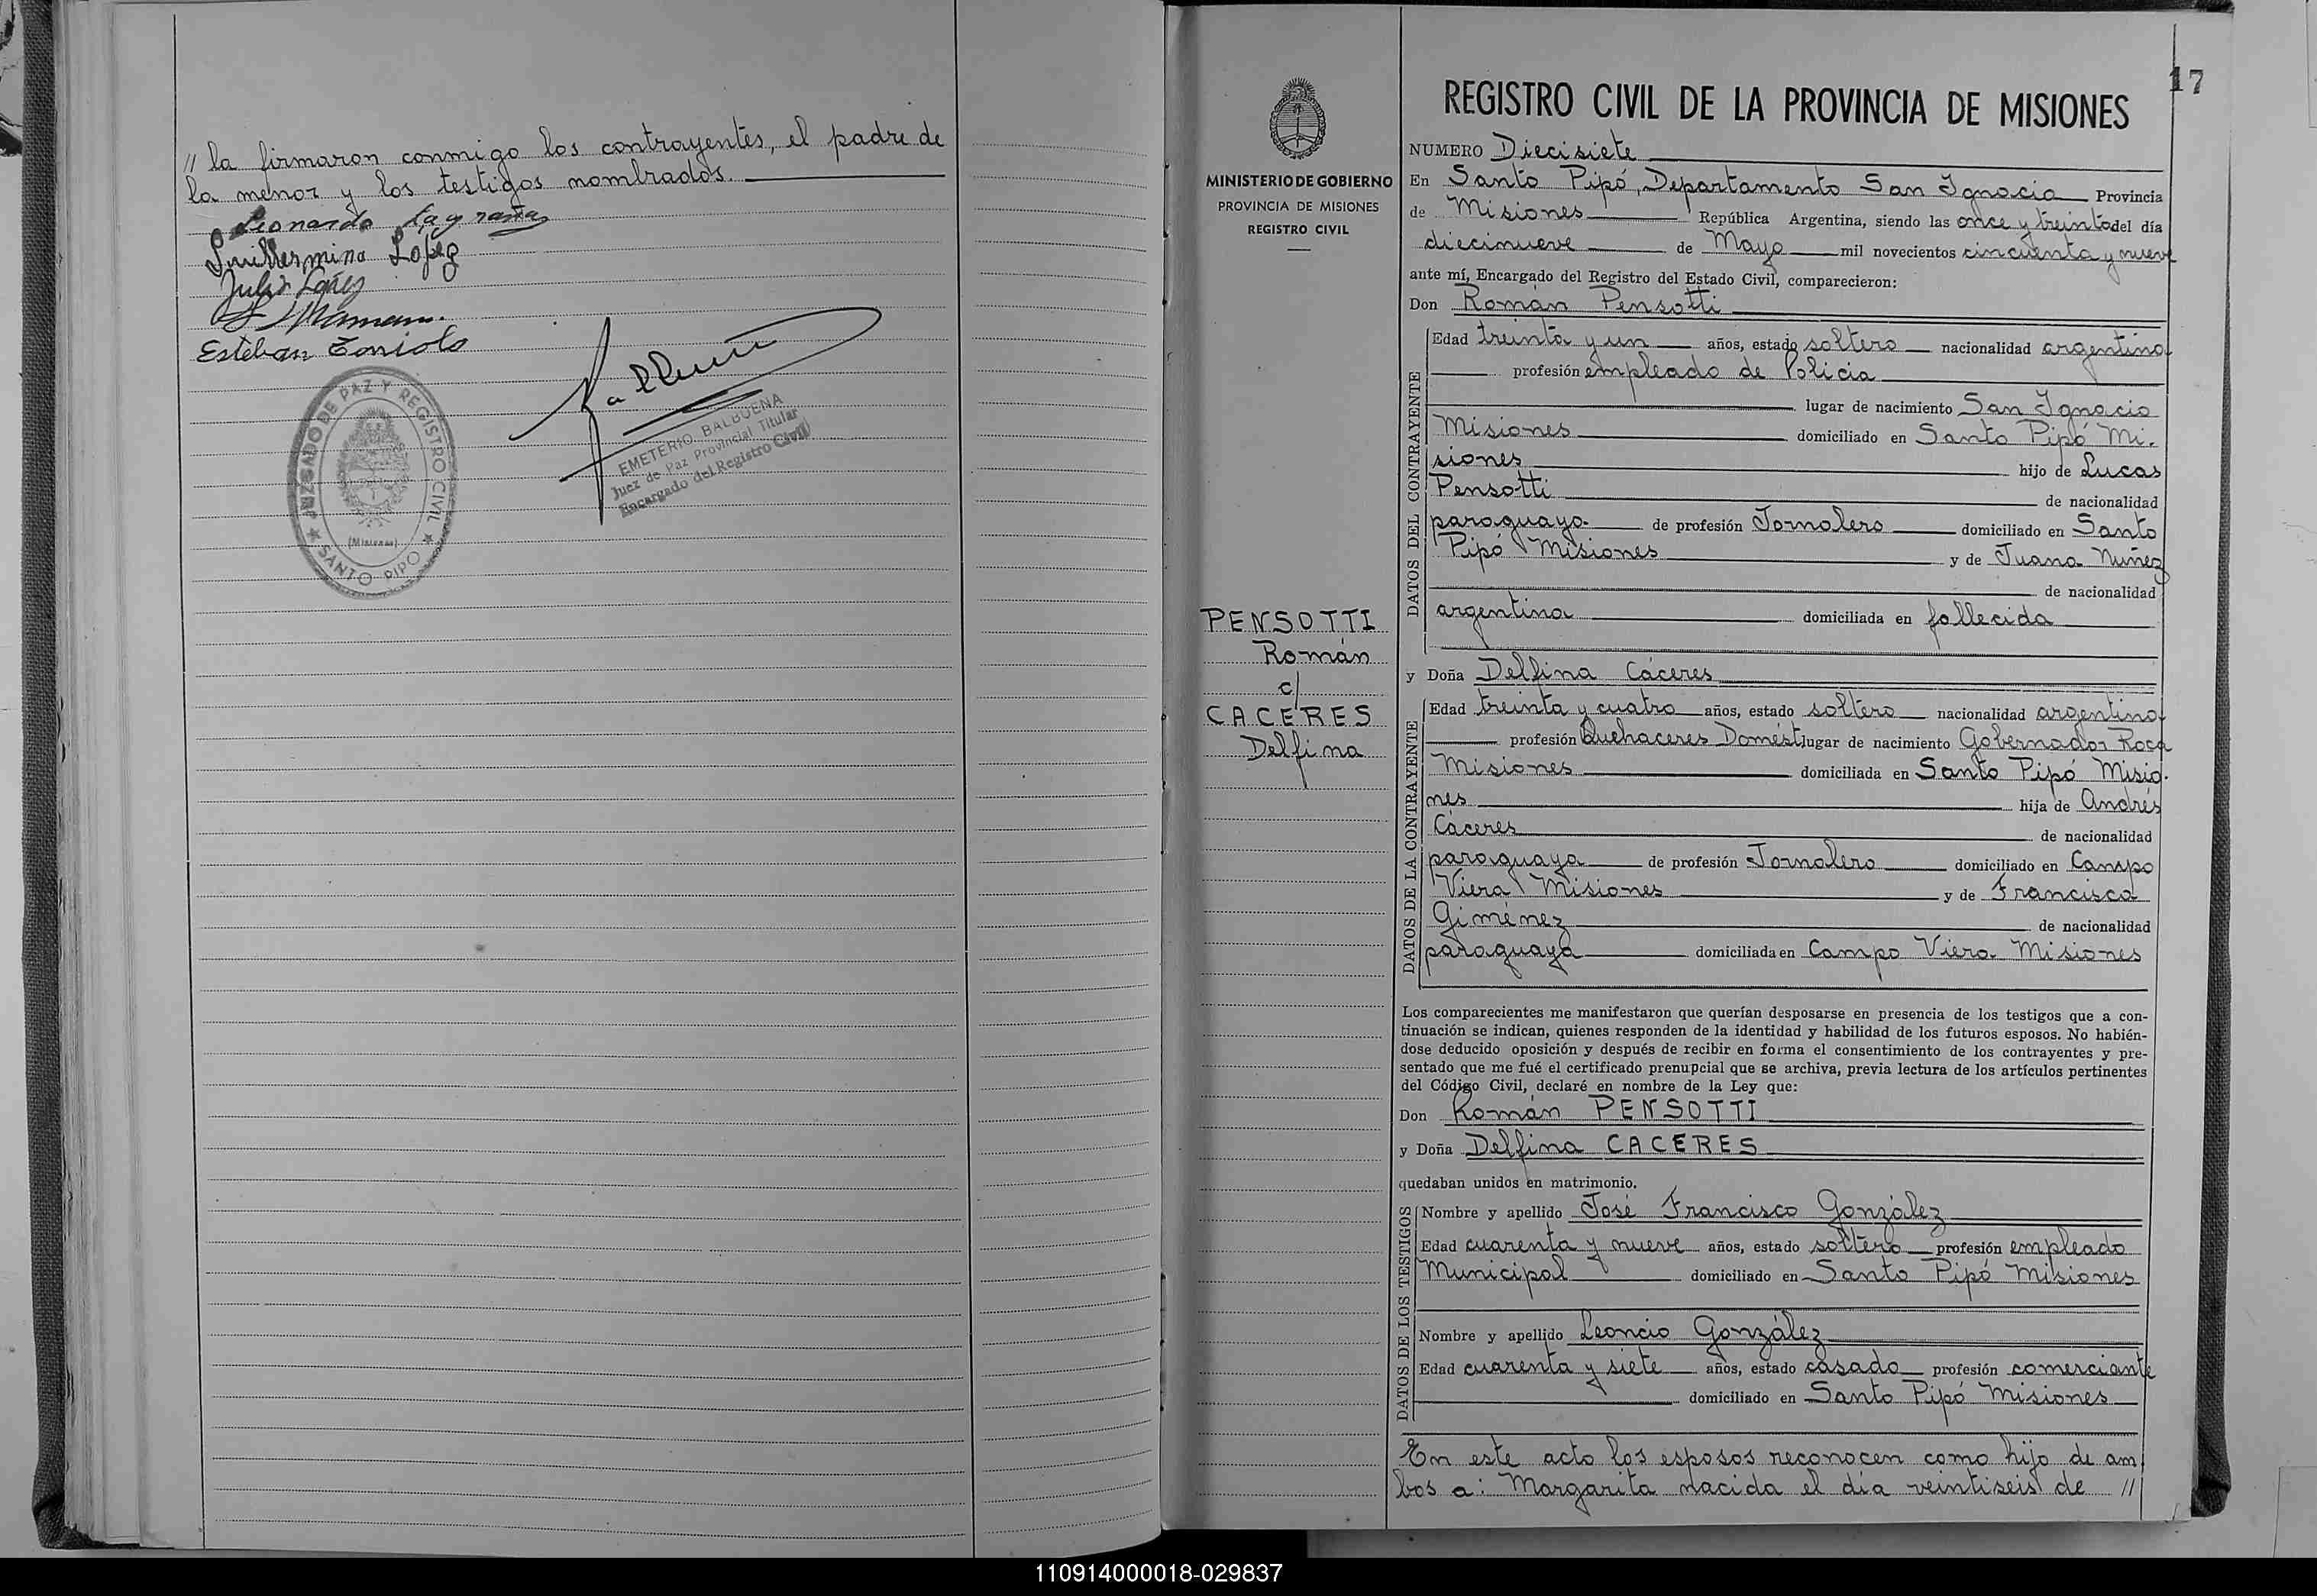 // la firmaron conmigo los contrayentes, el padre de
la menor y los testigos nombrados.
Leonardo
Guillermina López
Julio López
Esteban Toniolo
JUZGADO DE PAZ Y REGISTRO CIVIL
(Misiones)
SANTO PIPO
EMETERIO BALBUENA
Juez de Paz Provincial Titular
Encargado del Registro Civil
17
MINISTERIO DE GOBIERNO
PROVINCIA DE MISIONES
REGISTRO CIVIL
PENSOTTI
Román
c/
CACERES
Delfina
REGISTRO CIVIL DE LA PROVINCIA DE MISIONES
NUMERO Diecisiete
En Santo Pipó, Departamento San Ignacio Provincia
de Misiones República Argentina, siendo las once y treinta del día
diecinueve de Mayo mil novecientos cincuenta y nueve
ante mí, Encargado del Registro del Estado Civil, comparecieron:
Don Román Pensotti
DATOS DEL CONTRAYENTE
Edad treinta y un años, estado soltero nacionalidad argentina
profesión empleado de Policia
lugar de nacimiento San Ignacio
Misiones domiciliado en Santo Pipó Mi-
siones hijo de Lucas
Pensotti de nacionalidad
paraguaya de profesión Jornalero domiciliado en Santo
Pipó Misiones y de Juana Nuñez
de nacionalidad
argentina domiciliada en fallecida
y Doña Delfina Cáceres
DATOS DE LA CONTRAYENTE
Edad treinta y cuatro años, estado soltera nacionalidad argentina
profesión Quehaceres Domést. lugar de nacimiento Gobernador Roca
Misiones domiciliada en Santo Pipó Misio-
nes hija de Andrés
Cáceres de nacionalidad
paraguaya de profesión Jornalero domiciliado en Campo
Viera Misiones y de Francisca
Giménez de nacionalidad
paraguaya domiciliada en Campo Viera Misiones
Los comparecientes me manifestaron que querían desposarse en presencia de los testigos que a con-
tinuación se indican, quienes responden de la identidad y habilidad de los futuros esposos. No habién-
dose deducido oposición y después de recibir en forma el consentimiento de los contrayentes y pre-
sentado que me fué el certificado prenupcial que se archiva, previa lectura de los artículos pertinentes
del Código Civil, declaré en nombre de la Ley que:
Don Román PENSOTTI
y Doña Delfina CACERES
quedaban unidos en matrimonio.
DATOS DE LOS TESTIGOS
Nombre y apellido José Francisco González
Edad cuarenta y nueve años, estado soltero profesión empleado
Municipal domiciliado en Santo Pipó Misiones
Nombre y apellido Leoncio González
Edad cuarenta y siete años, estado casado profesión comerciante
domiciliado en Santo Pipó Misiones
En este acto los esposos reconocen como hijo de am
bos a: Margarita nacida el día veintiseis de //
110914000018-029837